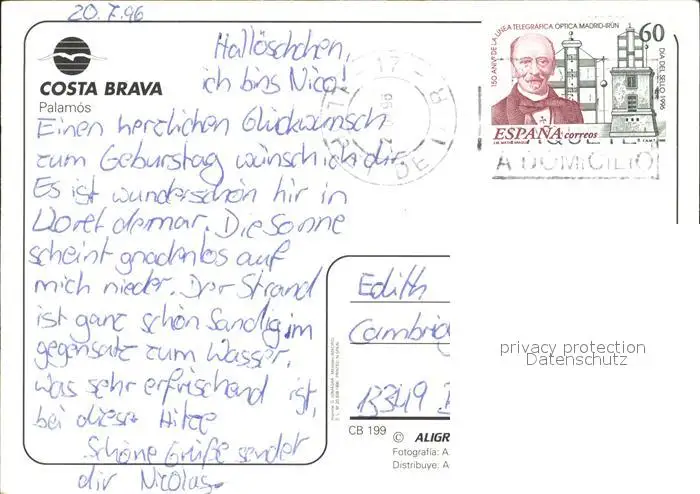 20.7.96
Hallöschchen,
ich bins Nico!
COSTA BRAVA
Palamós
Einen herzlichen Glückwunsch
zum Geburstag wünsch ich dir.
Es ist wunderschön hir in
Lloret demar. Die Sonne
scheint gnadenlos auf
mich nieder. Der Strand
ist ganz schön Sandig im
gegensatz zum Wasser,
was sehr erfrischend ist,
bei dieser Hitze
Schöne Grüße sendet
dir Nicolas
150 ANIV. DE LA LINEA TELEGRÁFICA ÓPTICA MADRID-IRÚN
60
DIA DEL SELLO 1996
ESPAÑA correos
A DOMICILIO
17
96
Edith
Cambrid
13349
privacy protection
Datenschutz
CB 199
© ALIGR
Fotografía: A.
Distribuye: A.